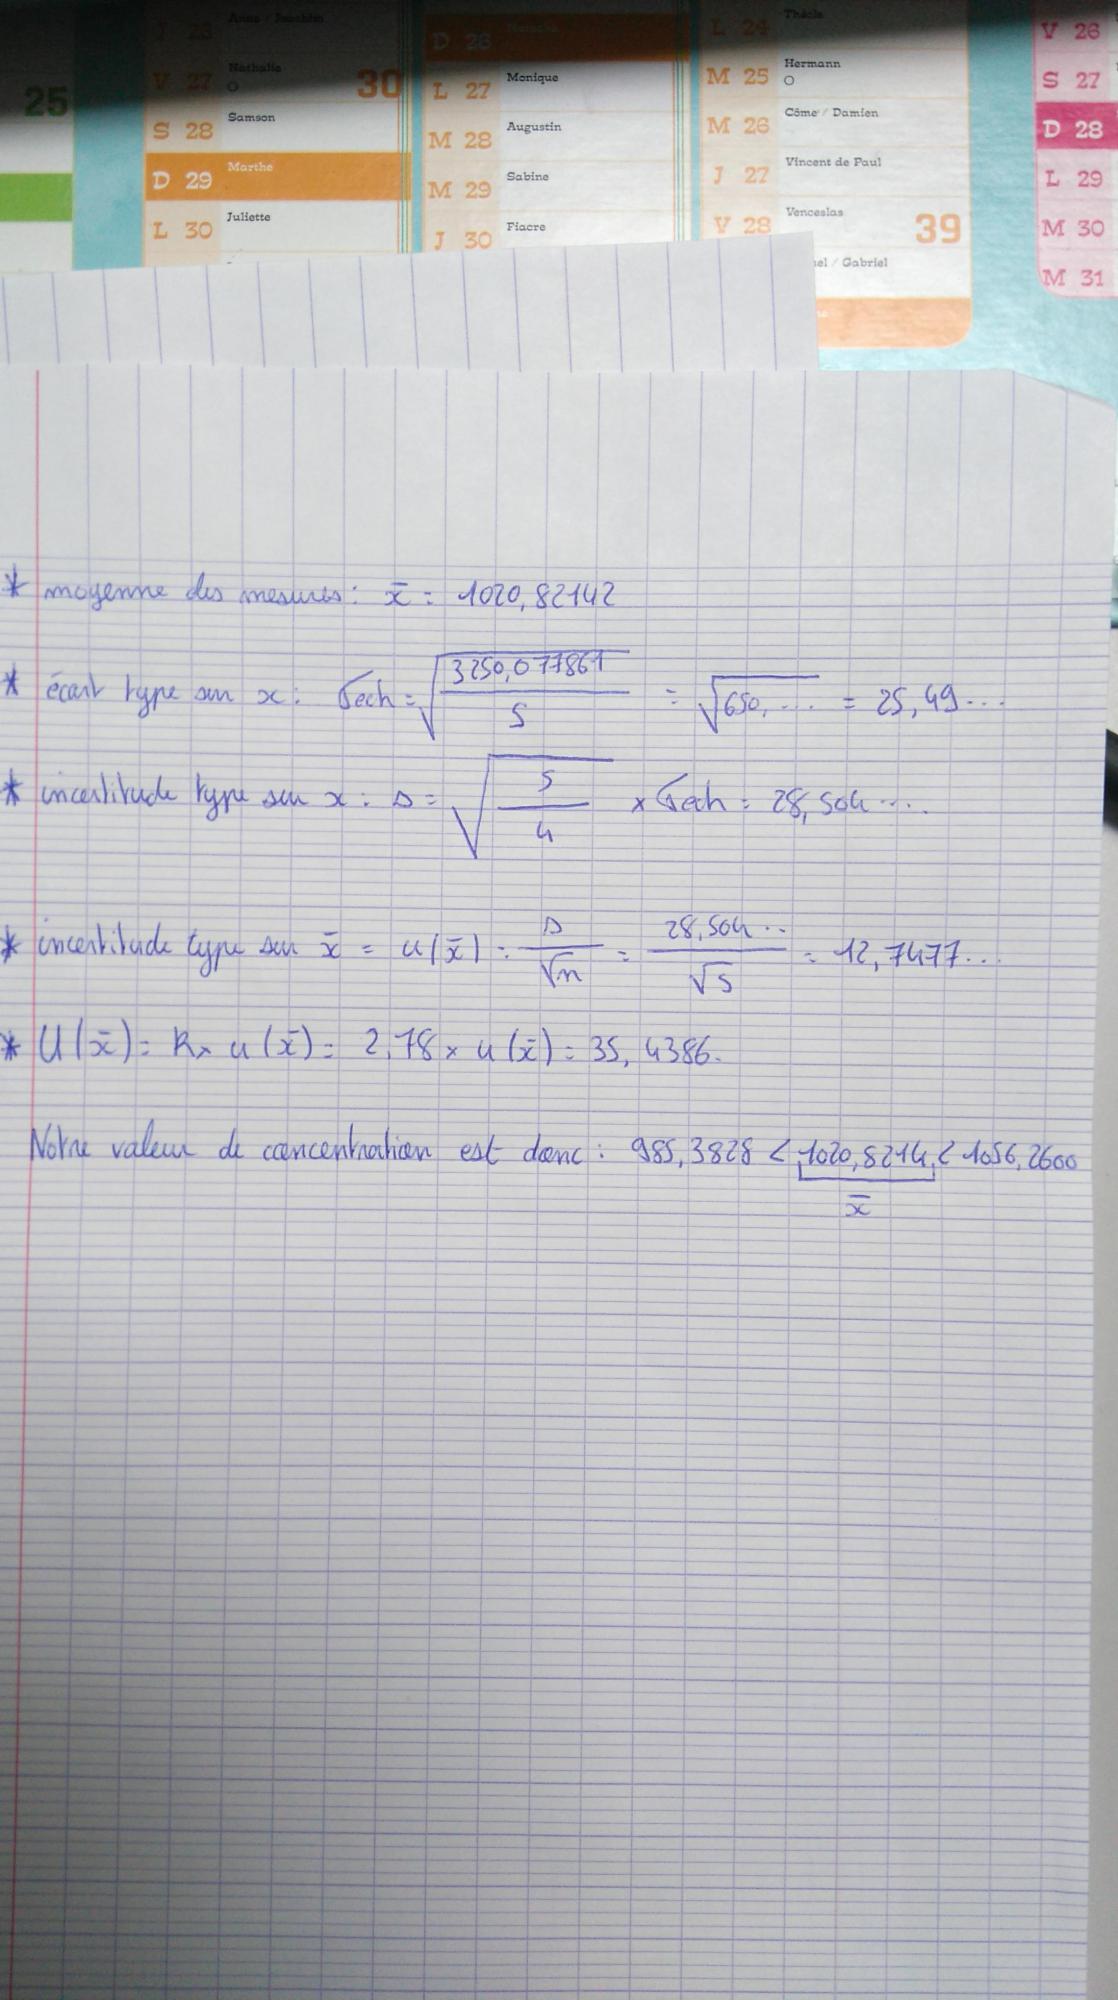 J 26 Anne / Joachim
V 27 Nathalie
O
30
S 28 Samson
D 29 Marthe
L 30 Juliette
25
D 26 Natacha
L 27 Monique
M 28 Augustin
M 29 Sabine
J 30 Fiacre
L 24 Thècle
M 25 Hermann
O
M 26 Côme / Damien
J 27 Vincent de Paul
V 28 Venceslas
39
el / Gabriel
V 26
S 27
D 28
L 29
M 30
M 31
* moyenne des mesures : x̄ = 1020,82142
* écart type sur x : σech = √(3250,077861 / 5) = √650,... = 25,49...
* incertitude type sur x : s = √(5 / 4) × σech = 28,504...
* incertitude type sur x̄ = u(x̄) = s / √n = 28,504.. / √5 = 12,7477...
* U(x̄) = k × u(x̄) = 2,78 × u(x̄) = 35,4386.
Notre valeur de concentration est donc : 985,3828 < 1020,8214 < 1056,2600
x̄